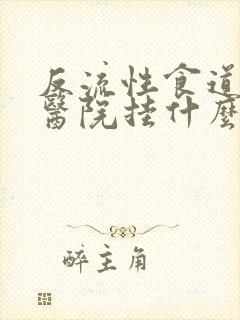 反流性食道
醫院挂什麼
醉主角